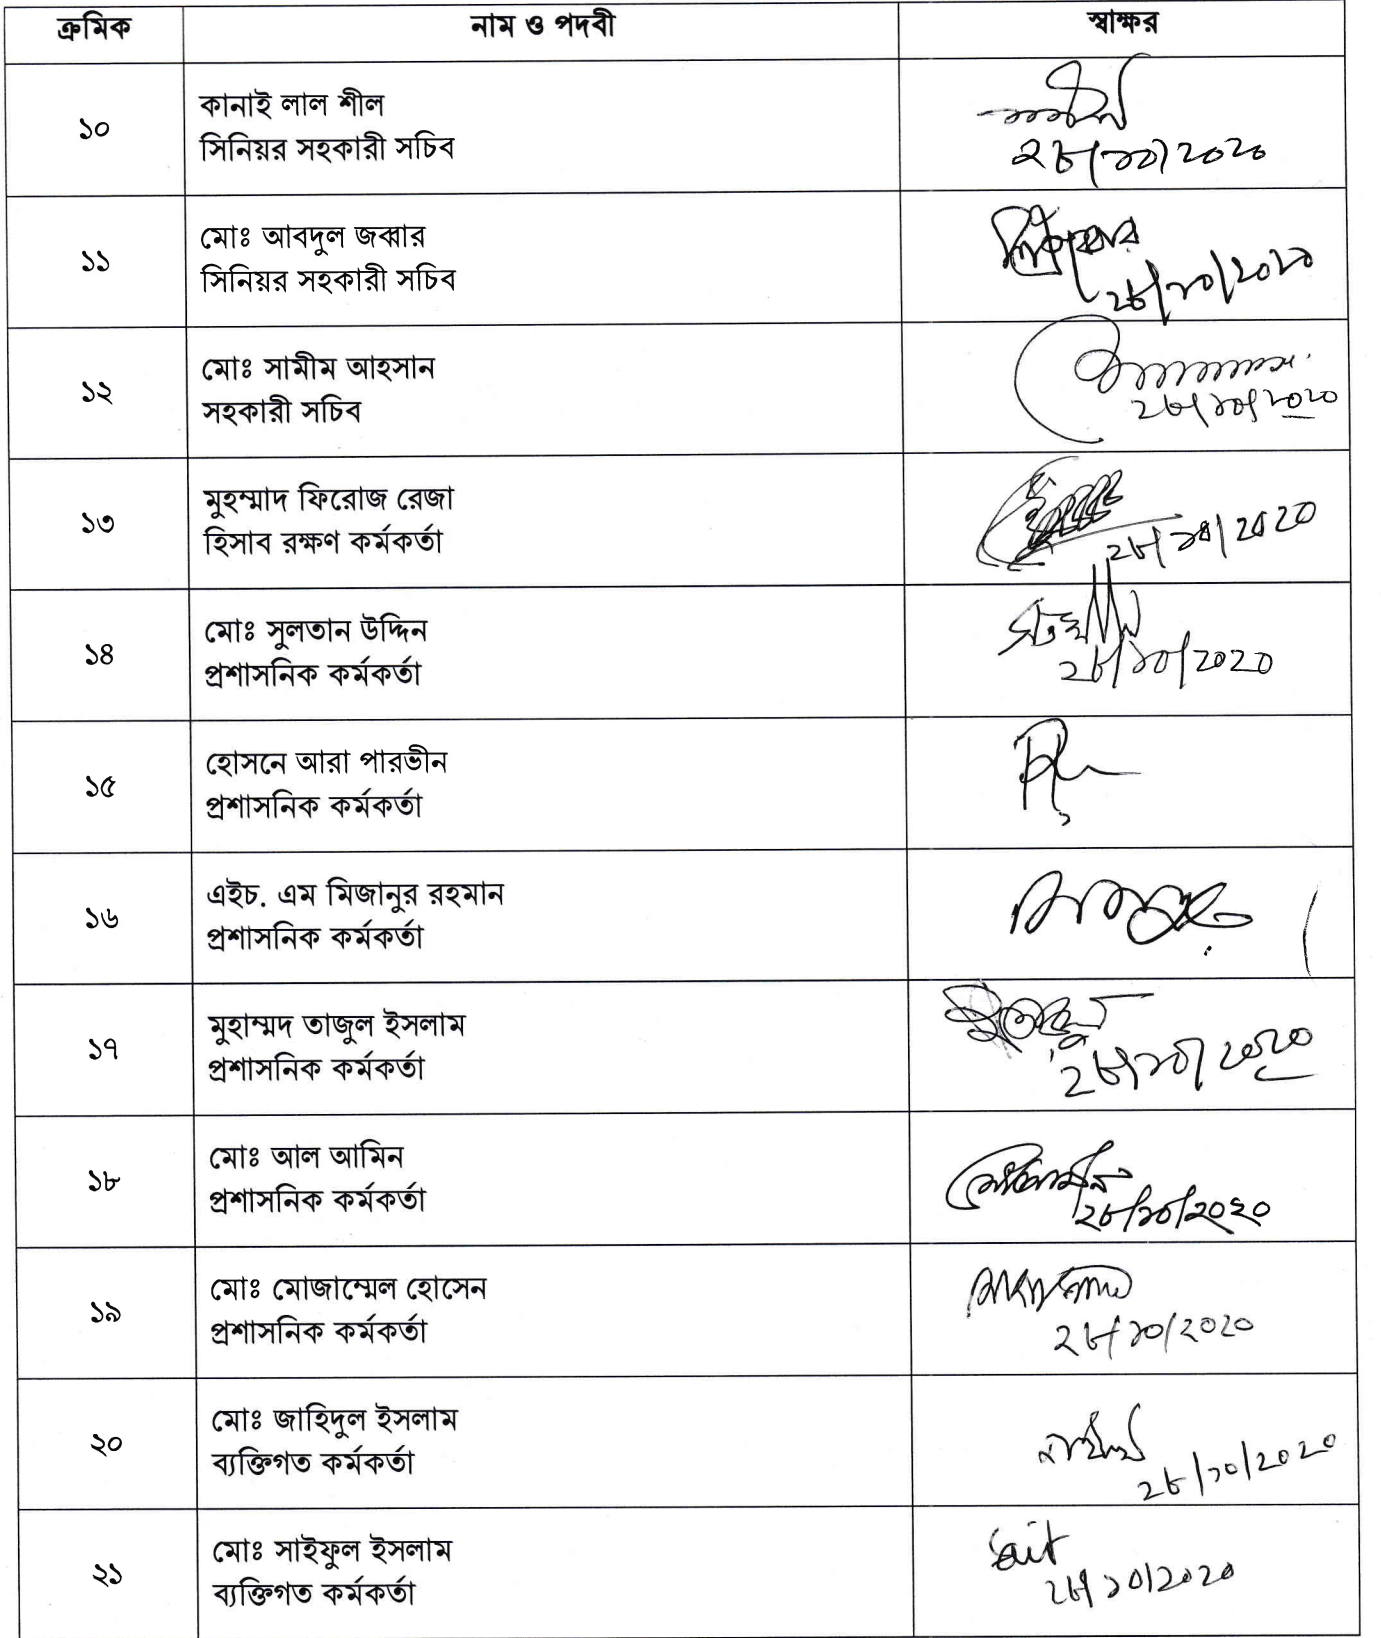 ক্রমিক নাম ও পদবী স্বাক্ষর
১০
কানাই লাল শীল
সিনিয়র সহকারী সচিব
২৮/১০/২০২০
১১
মোঃ আবদুল জব্বার
সিনিয়র সহকারী সচিব
২৮/১০/২০২০
১২
মোঃ সামীম আহসান
সহকারী সচিব
২৮/১০/২০২০
১৩
মুহম্মাদ ফিরোজ রেজা
হিসাব রক্ষণ কর্মকর্তা
২৮/১০/২০২০
১৪
মোঃ সুলতান উদ্দিন
প্রশাসনিক কর্মকর্তা
২৮/১০/২০২০
১৫
হোসনে আরা পারভীন
প্রশাসনিক কর্মকর্তা
১৬
এইচ. এম মিজানুর রহমান
প্রশাসনিক কর্মকর্তা
১৭
মুহাম্মদ তাজুল ইসলাম
প্রশাসনিক কর্মকর্তা
২৮/১০/২০২০
১৮
মোঃ আল আমিন
প্রশাসনিক কর্মকর্তা
২৮/১০/২০২০
১৯
মোঃ মোজাম্মেল হোসেন
প্রশাসনিক কর্মকর্তা
২৮/১০/২০২০
২০
মোঃ জাহিদুল ইসলাম
ব্যক্তিগত কর্মকর্তা
২৮/১০/২০২০
২১
মোঃ সাইফুল ইসলাম
ব্যক্তিগত কর্মকর্তা
২৮/১০/২০২০